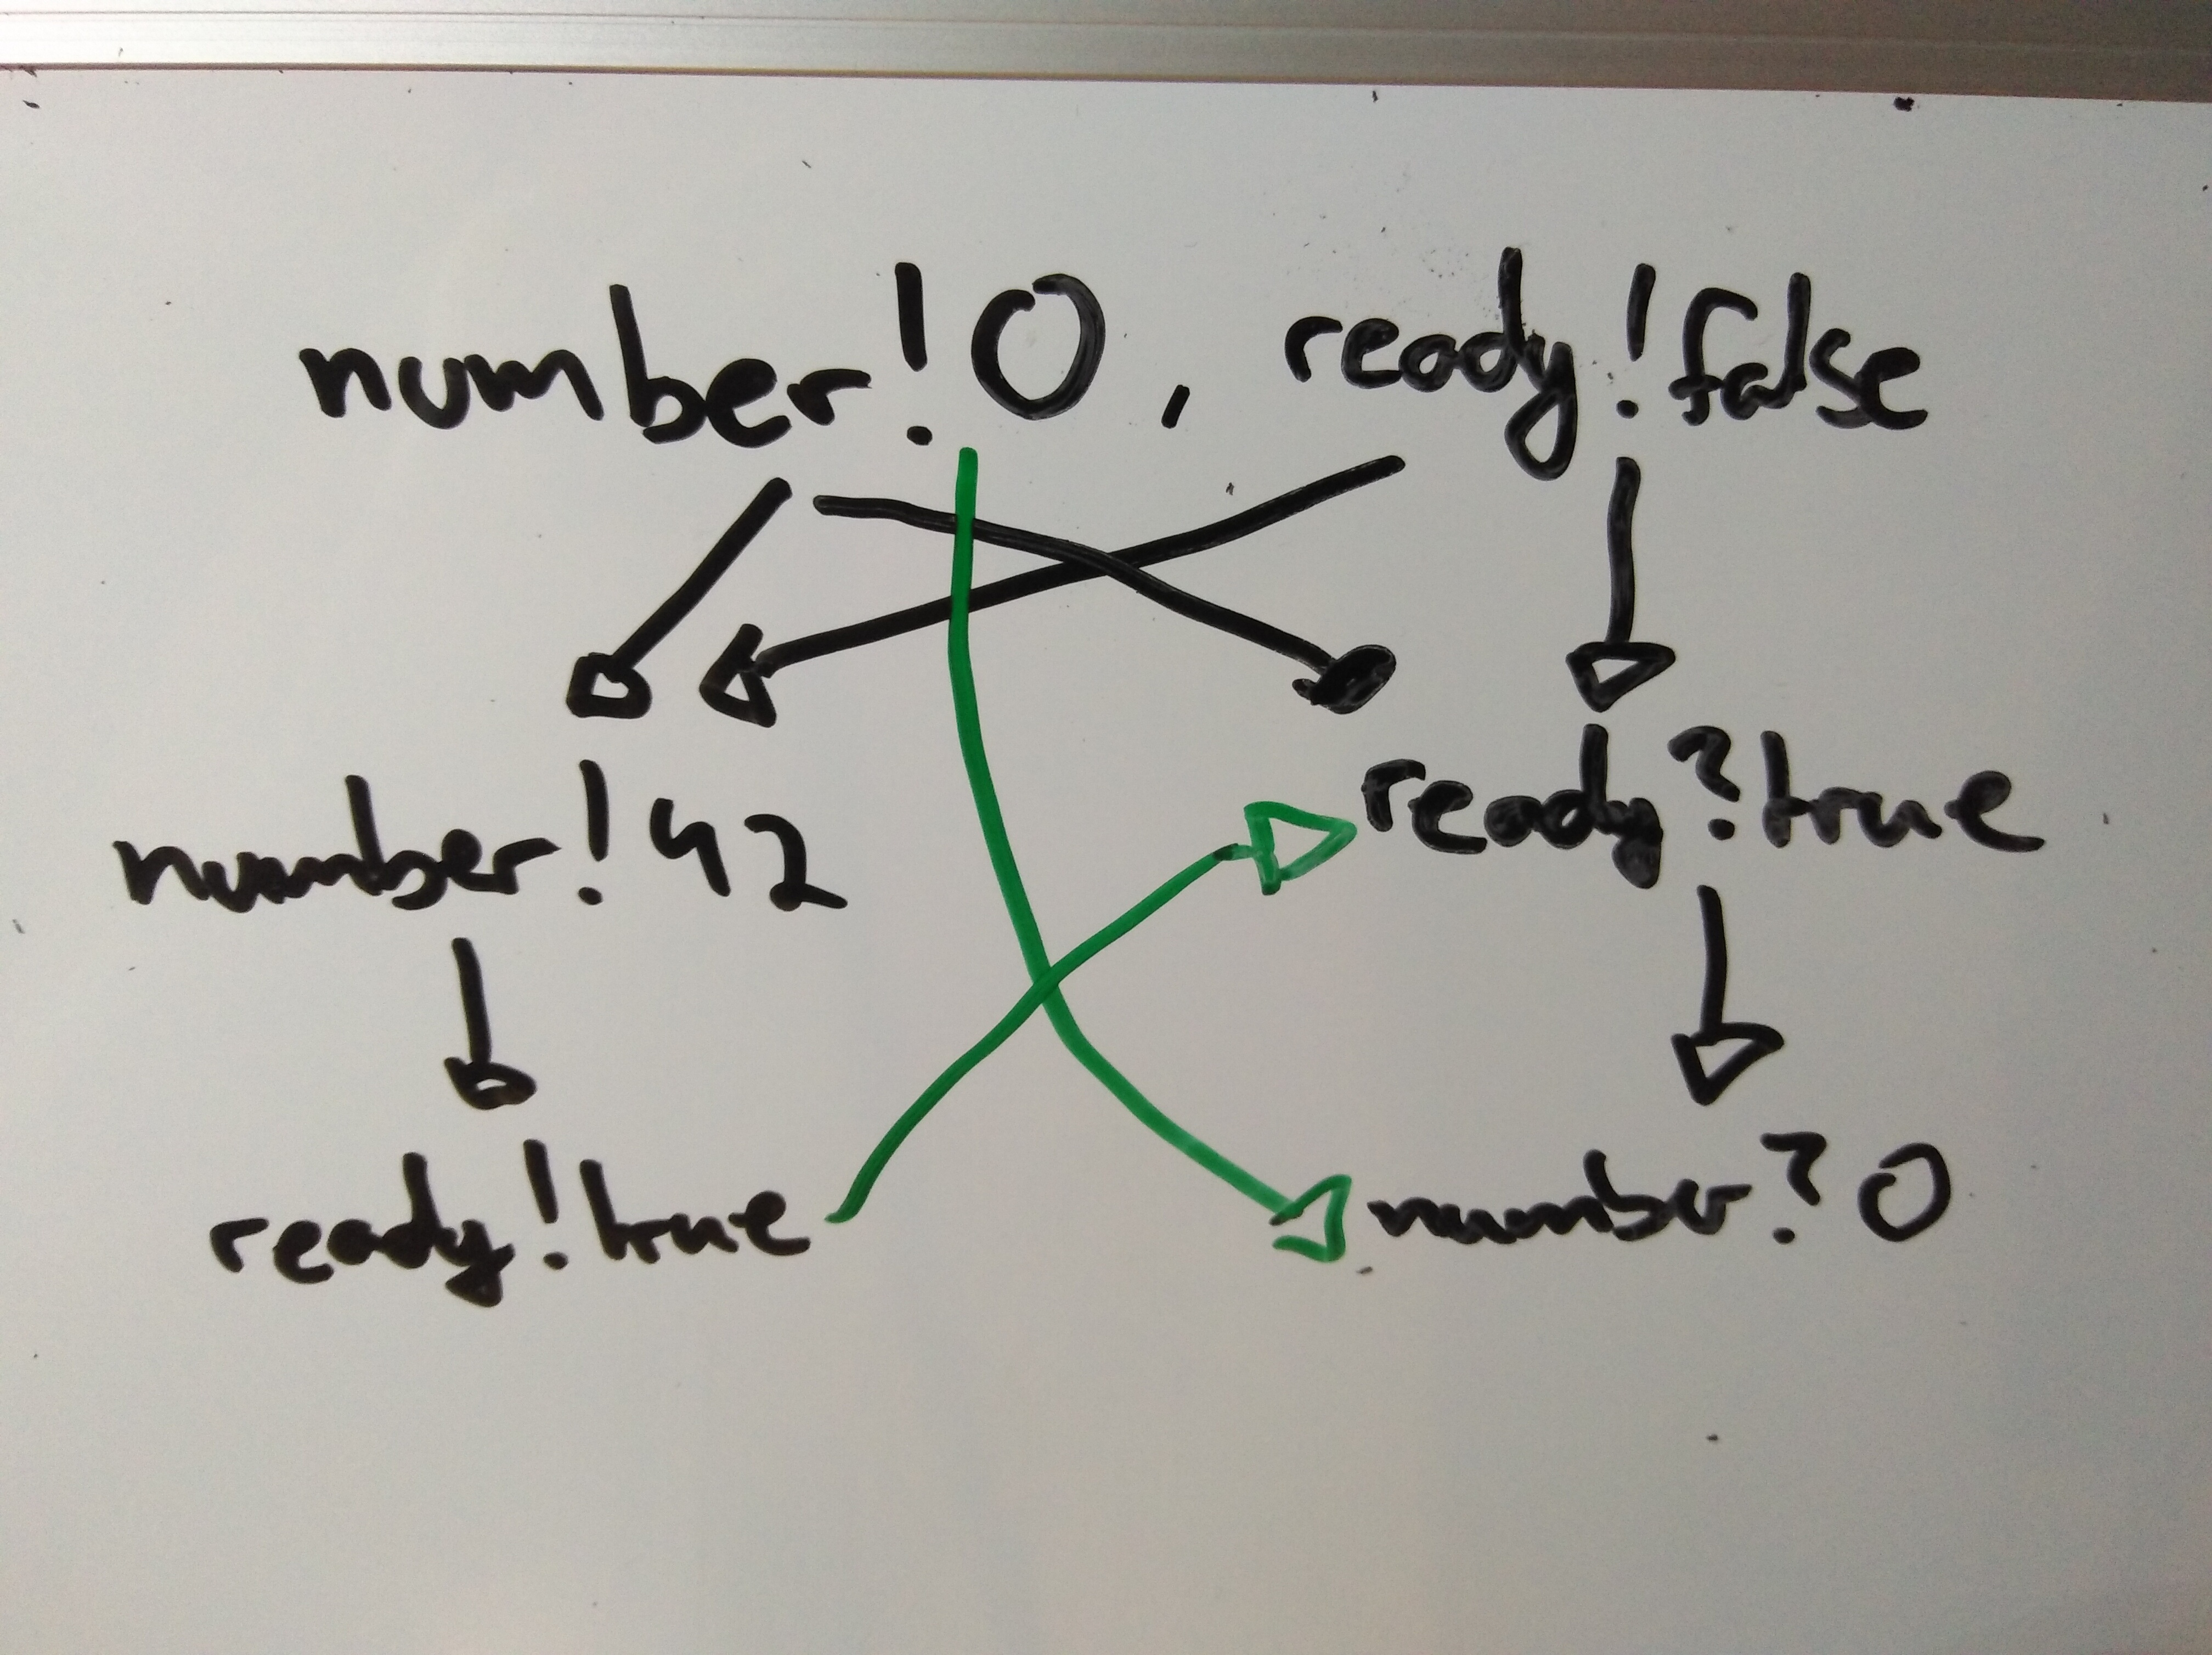 number!0, ready!false
number!42
ready?true
ready!true
number?0